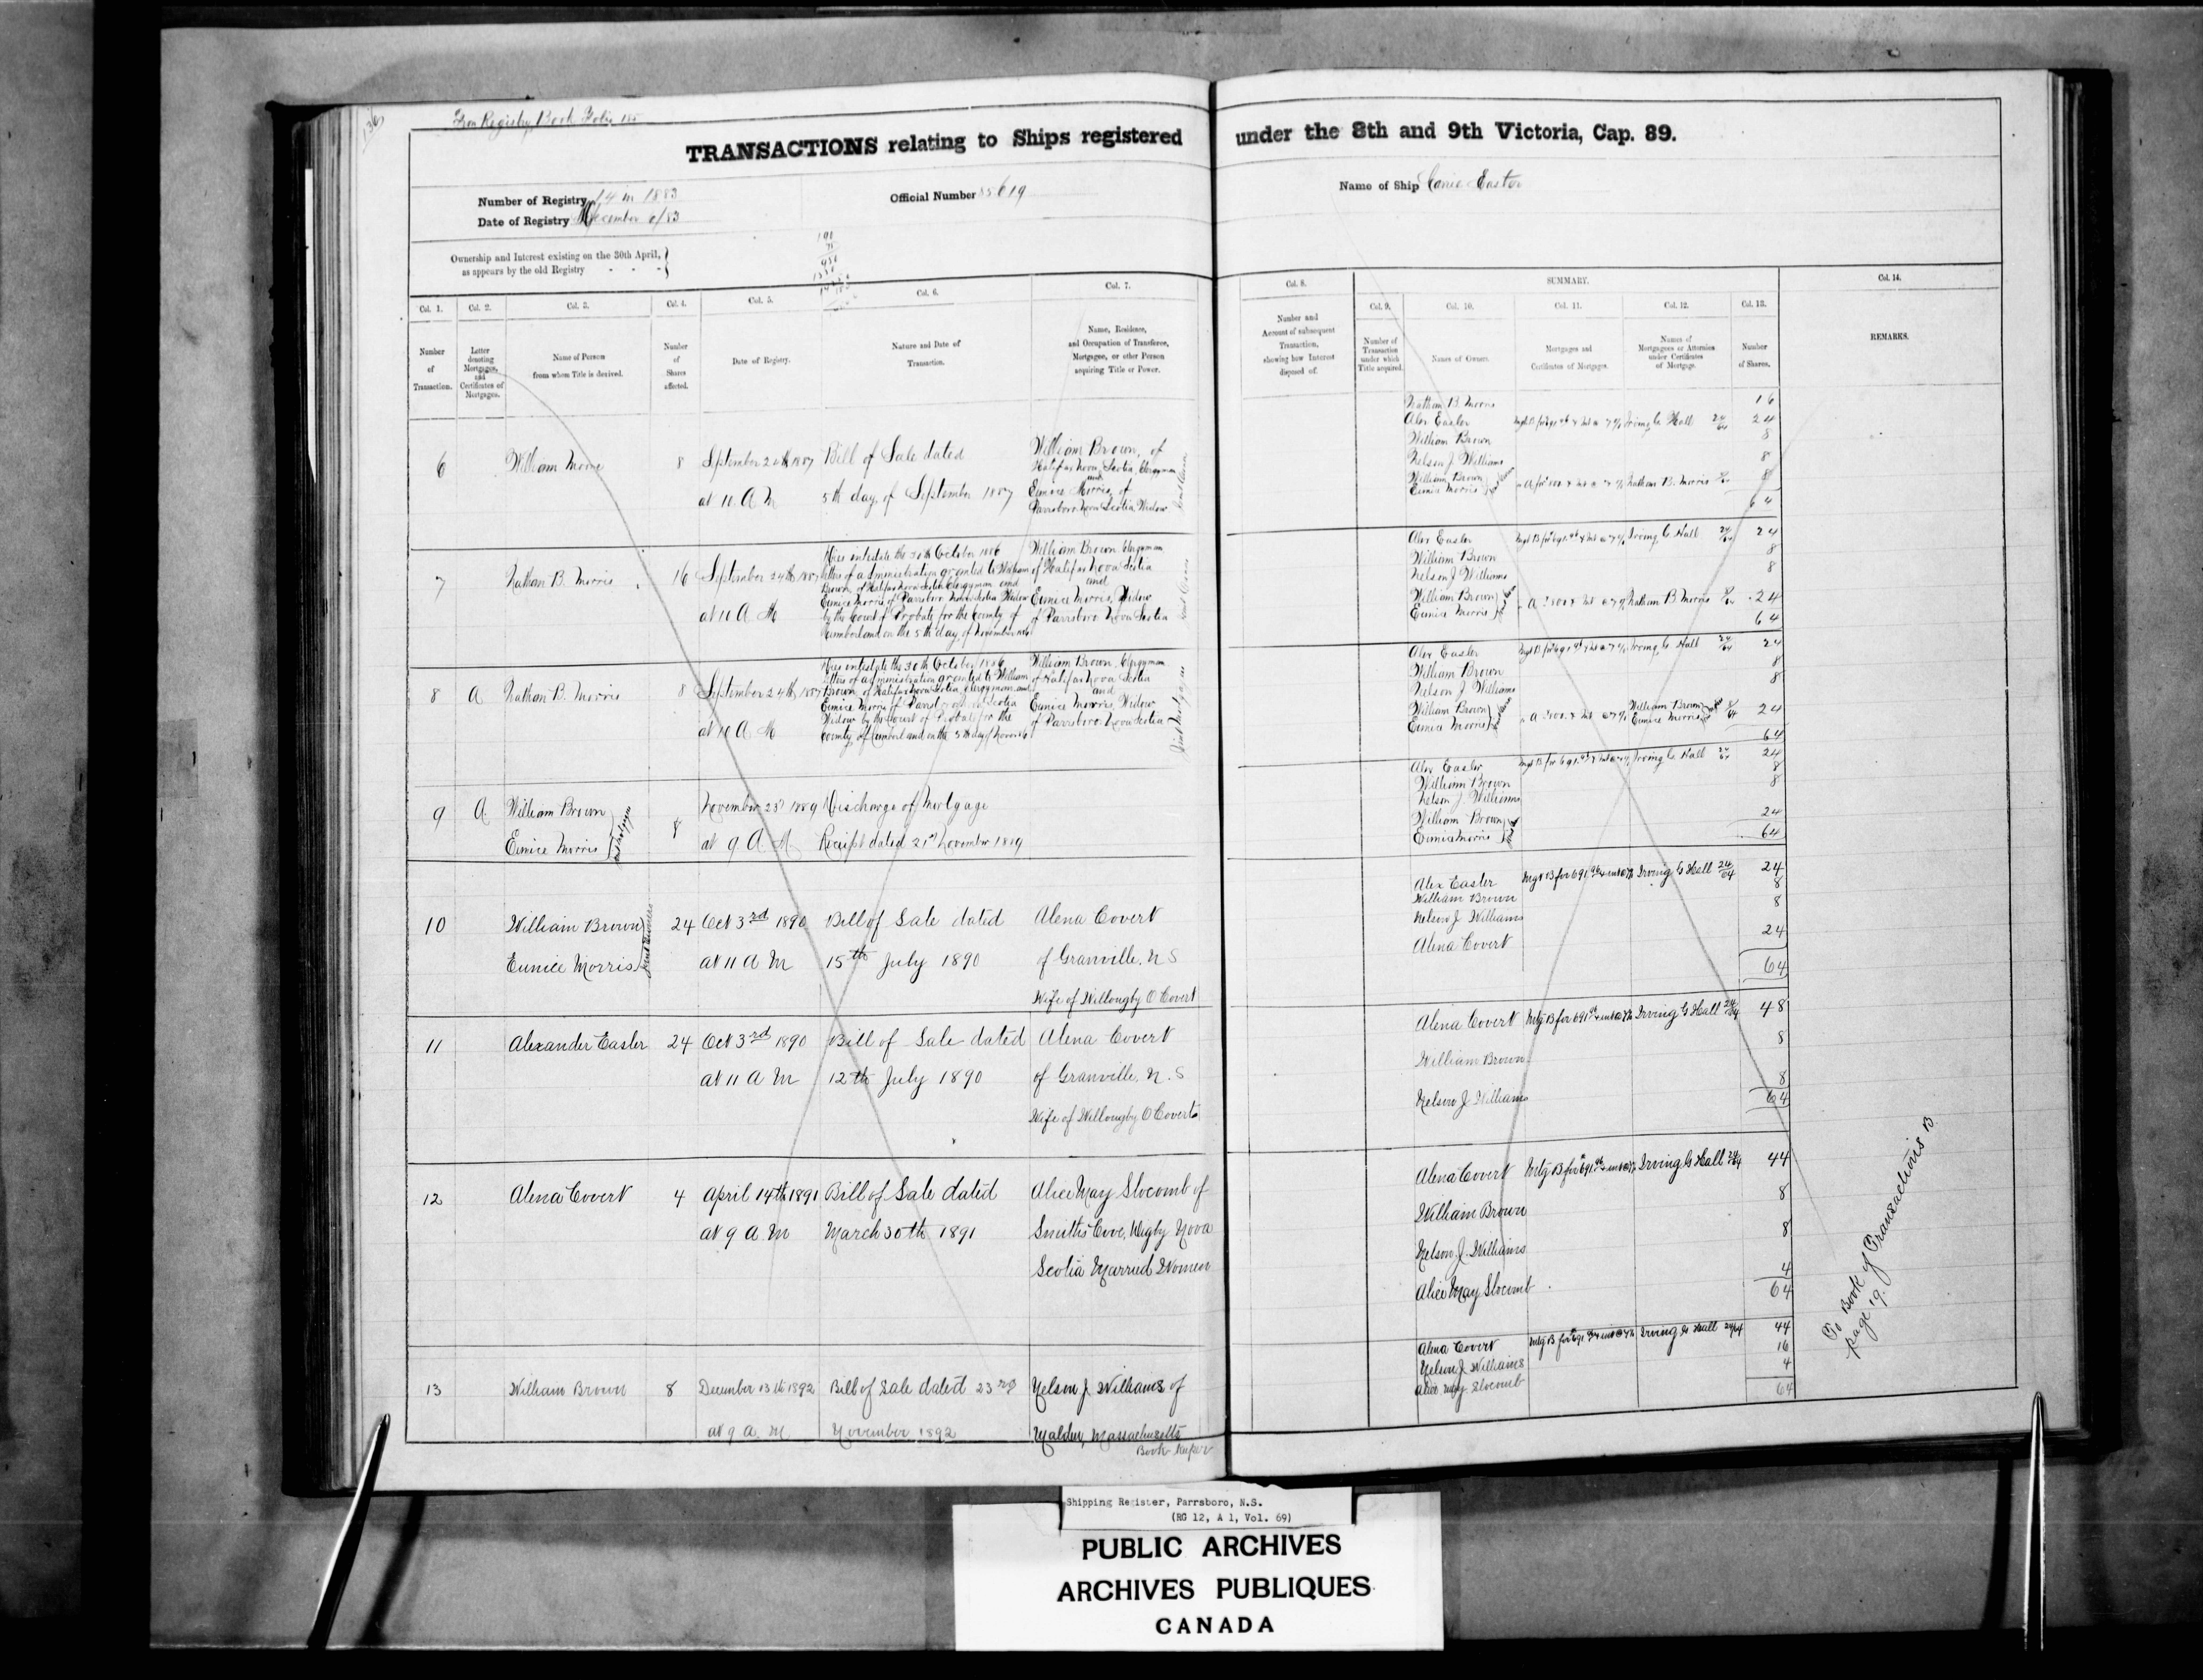 From Registry Book Folio 185
TRANSACTIONS relating to Ships registered under the 8th and 9th Victoria, Cap. 89.
Number of Registry 14 in 1883
Date of Registry December 6/83
Official Number 85619
Name of Ship Easter
Ownership and Interest existing on the 30th April,
as appears by the old Registry - - -
Col. 1. Col. 2. Col. 3. Col. 4. Col. 5. Col. 6. Col. 7.
Number of Transaction.
Letter denoting Mortgages, and Certificates of Mortgages.
Name of Person from whom Title is derived.
Number of Shares affected.
Date of Registry.
Nature and Date of Transaction.
Name, Residence, and Occupation of Transferee, Mortgagee, or other Person acquiring Title or Power.
Col. 8. SUMMARY. Col. 14.
Col. 9. Col. 10. Col. 11. Col. 12. Col. 13.
Number and Account of subsequent Transaction, showing how Interest disposed of.
Number of Transaction under which Title acquired.
Names of Owners.
Mortgages and Certificates of Mortgages.
Names of Mortgagees or Attornies under Certificates of Mortgage.
Number of Shares.
REMARKS.
6 William Moore 8 September 24th 1887 Bill of Sale dated William Brown, of
Halifax Nova Scotia, Clergyman
and
at 10 A M 5th day of September 1887 Eunice Morris, of
Parrsboro Nova Scotia Widow
Nathan B. Morris 16
Alex Easler Irving G Hall 24/64 24
William Brown 8
Nelson J Williams 8
William Brown
Eunice Morris Nathan B. Morris 8
64
7 Nathan B. Morris 16 September 24th 1887
at 10 A M
Dies intestate the 30th October 1886
letters of administration granted to William
Brown, of Halifax Nova Scotia Clergyman and
Eunice Morris of Parrsboro Nova Scotia Widow
by the Court of Probate for the County of
Cumberland on the 5th day of November 1886
William Brown Clergyman
of Halifax Nova Scotia
and
Eunice Morris, Widow
of Parrsboro Nova Scotia
Alex Easler Irving G Hall 24/64 24
William Brown 8
Nelson J Williams 8
William Brown
Eunice Morris Nathan B Morris 24
64
8 A Nathan B. Morris 8 September 24th 1887
at 10 A M
Dies intestate the 30th October 1886
letters of administration granted to William
Brown, of Halifax Nova Scotia, Clergyman and
Eunice Morris of Parrsboro Nova Scotia
Widow by the Court of Probate for the
County of Cumberland on the 5th day of Novr 1886
William Brown, Clergyman
of Halifax Nova Scotia
and
Eunice Morris, Widow
of Parrsboro Nova Scotia
Joint Mortgagees
Alex Easler Irving G Hall 24/64 24
William Brown 8
Nelson J Williams 8
William Brown William Brown
Eunice Morris Eunice Morris 24
64
9 A William Brown 8 November 23rd 1889 Discharge of Mortgage
Eunice Morris at 9 A. M. Receipt dated 21st November 1889
Alex Easler Irving G Hall 24
William Brown 8
Nelson J. Williams 8
William Brown 24
Eunice Morris 64
10 William Brown 24 Oct 3rd 1890 Bill of Sale dated Alena Covert
Eunice Morris Joint Owners at 11 A M 15th July 1890 of Granville, N S
Wife of Willougby O Covert
Alex Easler Irving G Hall 24/64 24
William Brown 8
Nelson J Williams 8
Alena Covert 24
64
11 Alexander Easler 24 Oct 3rd 1890 Bill of Sale dated Alena Covert
at 11 A M 12th July 1890 of Granville, N. S
Wife of Willougby O Covert
Alena Covert Irving G Hall 24/64 48
William Brown 8
Nelson J Williams 8
64
12 Alena Covert 4 April 14th 1891 Bill of Sale dated Alice May Slocomb of
at 9 A M March 30th 1891 Smiths Cove, Digby Nova
Scotia Married Women
Alena Covert Irving G Hall 24/64 44
William Brown 8
Nelson J. Williams 8
Alice May Slocomb 4
64
13 William Brown 8 December 13th 1892 Bill of Sale dated 23rd Nelson J Williams of
at 9 A. M November 1892 Malden, Massachusetts
Book Keeper
Alena Covert Irving G Hall 24/64 44
Nelson J Williams 16
Alice May Slocomb 4
64
To Book of Transactions B
page 19.
Shipping Register, Parrsboro, N.S.
(RG 12, A 1, Vol. 69)
PUBLIC ARCHIVES
ARCHIVES PUBLIQUES
CANADA